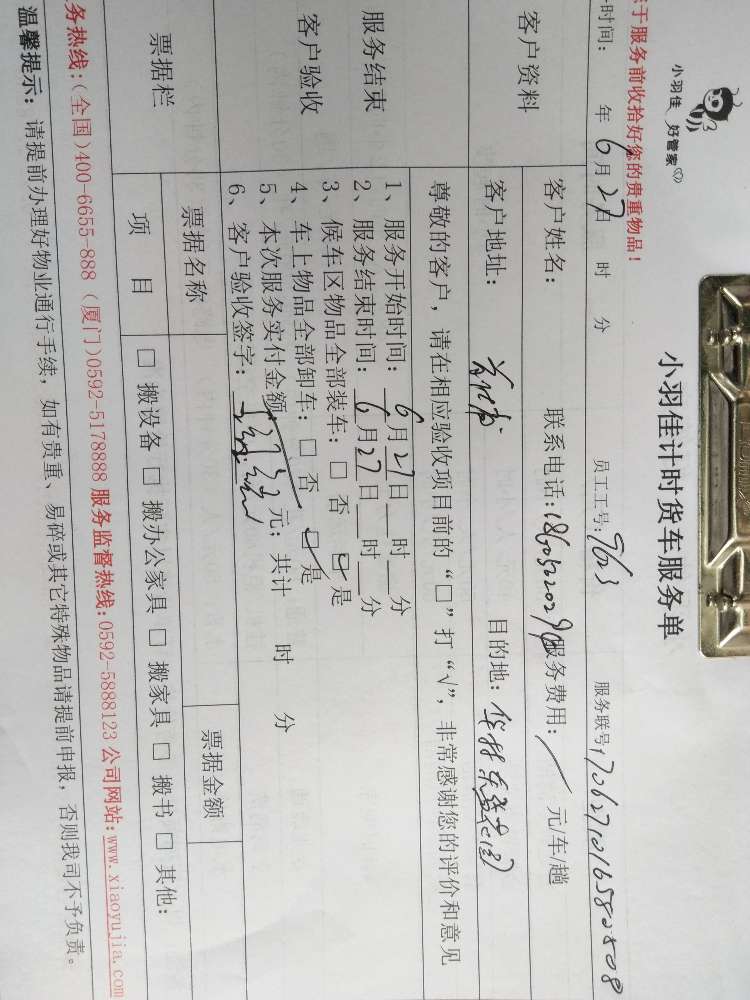 小羽佳 好管家
小羽佳计时货车服务单
于服务前收拾好您的贵重物品！
时间： 年6月27日 时 分 员工工号：7623 服务联号：
客户资料 客户姓名： 联系电话： 服务费用：/ 元/车/趟
客户地址： 目的地：
服务结束
客户验收
尊敬的客户，请在相应验收项目前的“□”打“√”，非常感谢您的评价和意见
1、服务开始时间：6月27日__时__分
2、服务结束时间：6月27日__时__分
3、候车区物品全部装车：□ 否 ☑ 是
4、车上物品全部卸车：□ 否 ☑ 是
5、本次服务实付金额 元；共计 时 分
6、客户验收签字：
票据栏 票据名称 票据金额
项 目 □ 搬设备 □ 搬办公家具 □ 搬家具 □ 搬书 □ 其他：
务热线：(全国)400-6655-888 (厦门)0592-5178888 服务监督热线：0592-5888123 公司网站：www.xiaoyujia.com
温馨提示：请提前办理好物业通行手续，如有贵重、易碎或其它特殊物品请提前申报，否则我司不予负责。